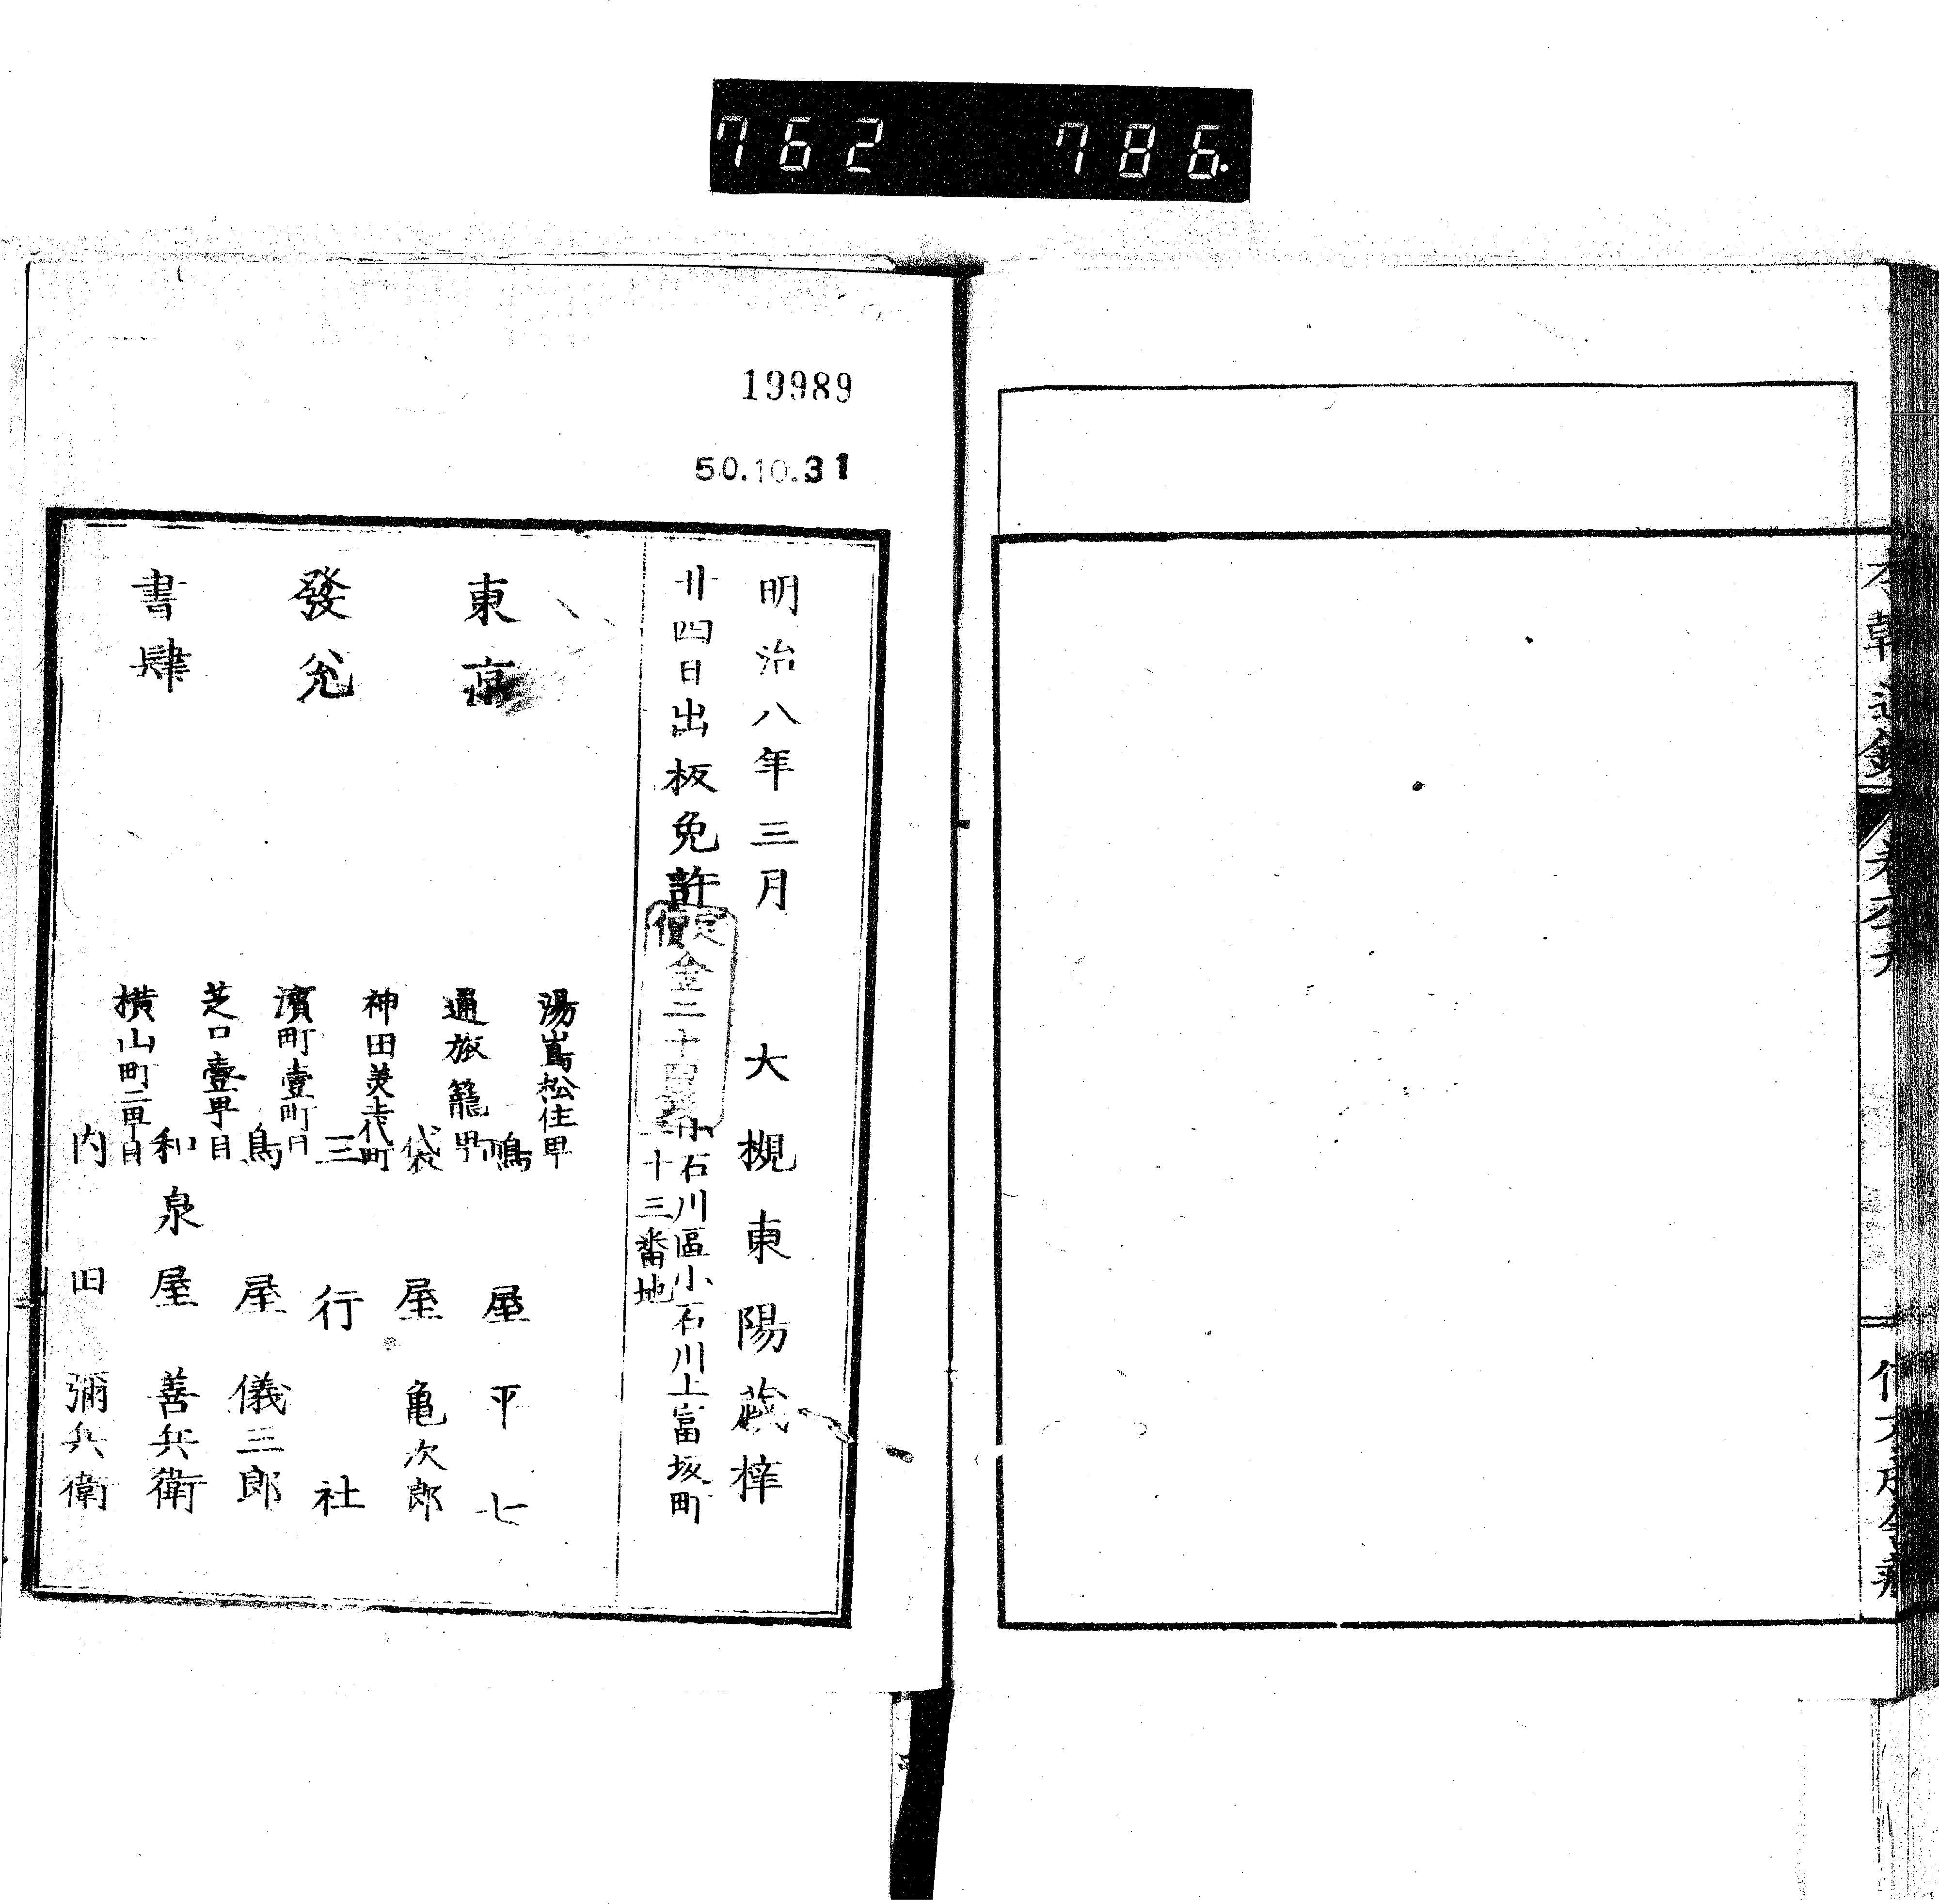 762 786.
本朝通鑑
19989
50.10.31
明治八年三月
大槻東陽蔵梓
廿四日出板免許
定價
金二十
小石川區小石川上富坂町
十三番地
東京
發兌
書肆
湯嶌松住甼
嶋屋平七
通旅籠甼
袋屋亀次郎
神田美土代町
三行社
濱町壹町目
鳥屋儀三郎
芝口壹甼目
和泉屋善兵衛
横山町二甼目
内田彌兵衛